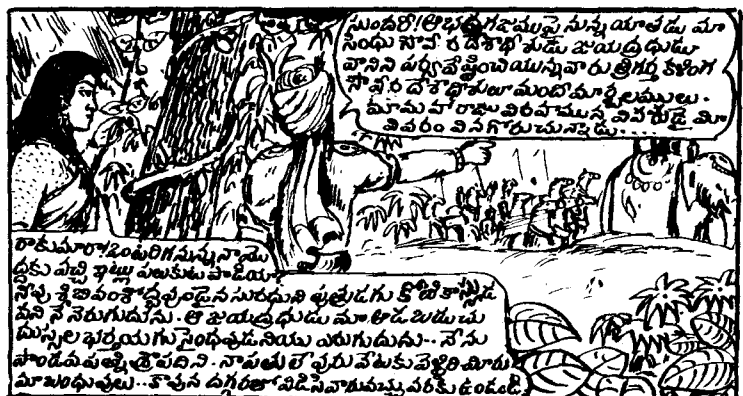 సుందరీ! ఆ భద్రగజముపై నున్న యాతడు మా
సింధు సౌవీర దేశాధీశుడు జయద్రధుడు
వానిని పర్యవేష్టించియున్నవారు త్రిగర్త కళింగ
సౌవీర దేశాధీశులు
మా మహారాజు వినగోరుచున్నాడు....
రాకుమారా! ఒంటరిగనున్న నా
ద్దకు వచ్చి ఇట్లు పలుకుట పాడియా
నీవు శిబివంశోద్భవుండైన సురధుని పుత్రుడగు కోటికాస్యుడ
వని నే నెరుగుదును. ఆ జయద్రధుడు మా ఆడబడుచు
దుస్సల భర్తయగు సైంధవుడనియు ఎరుగుదును.. నేను
పాండవపత్ని ద్రౌపదిని. నా పతులేవురు వేటకు వెళ్లిరి మీరు
మా బంధువులు.. కావున దగ్గరలో విడిసి వారువచ్చువరకు ఉండండి